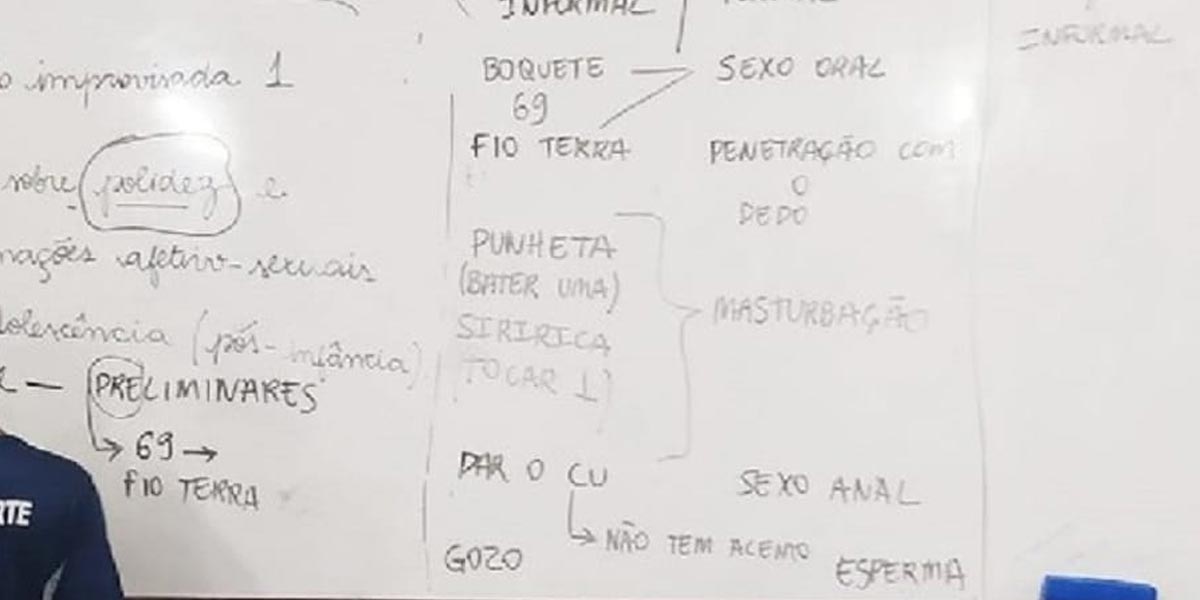 INFORMAL
INFORMAL
o improvisada 1
sobre polidez e
mações afetivo-sexuais
dolescência (pós-infância)
— PRELIMINARES
→ 69 →
FIO TERRA
RTE
BOQUETE — SEXO ORAL
69
FIO TERRA PENETRAÇÃO COM
O
DEDO
PUNHETA
(BATER UMA) MASTURBAÇÃO
SIRIRICA
TOCAR 1)
DAR O CU SEXO ANAL
→ NÃO TEM ACENTO
GOZO ESPERMA